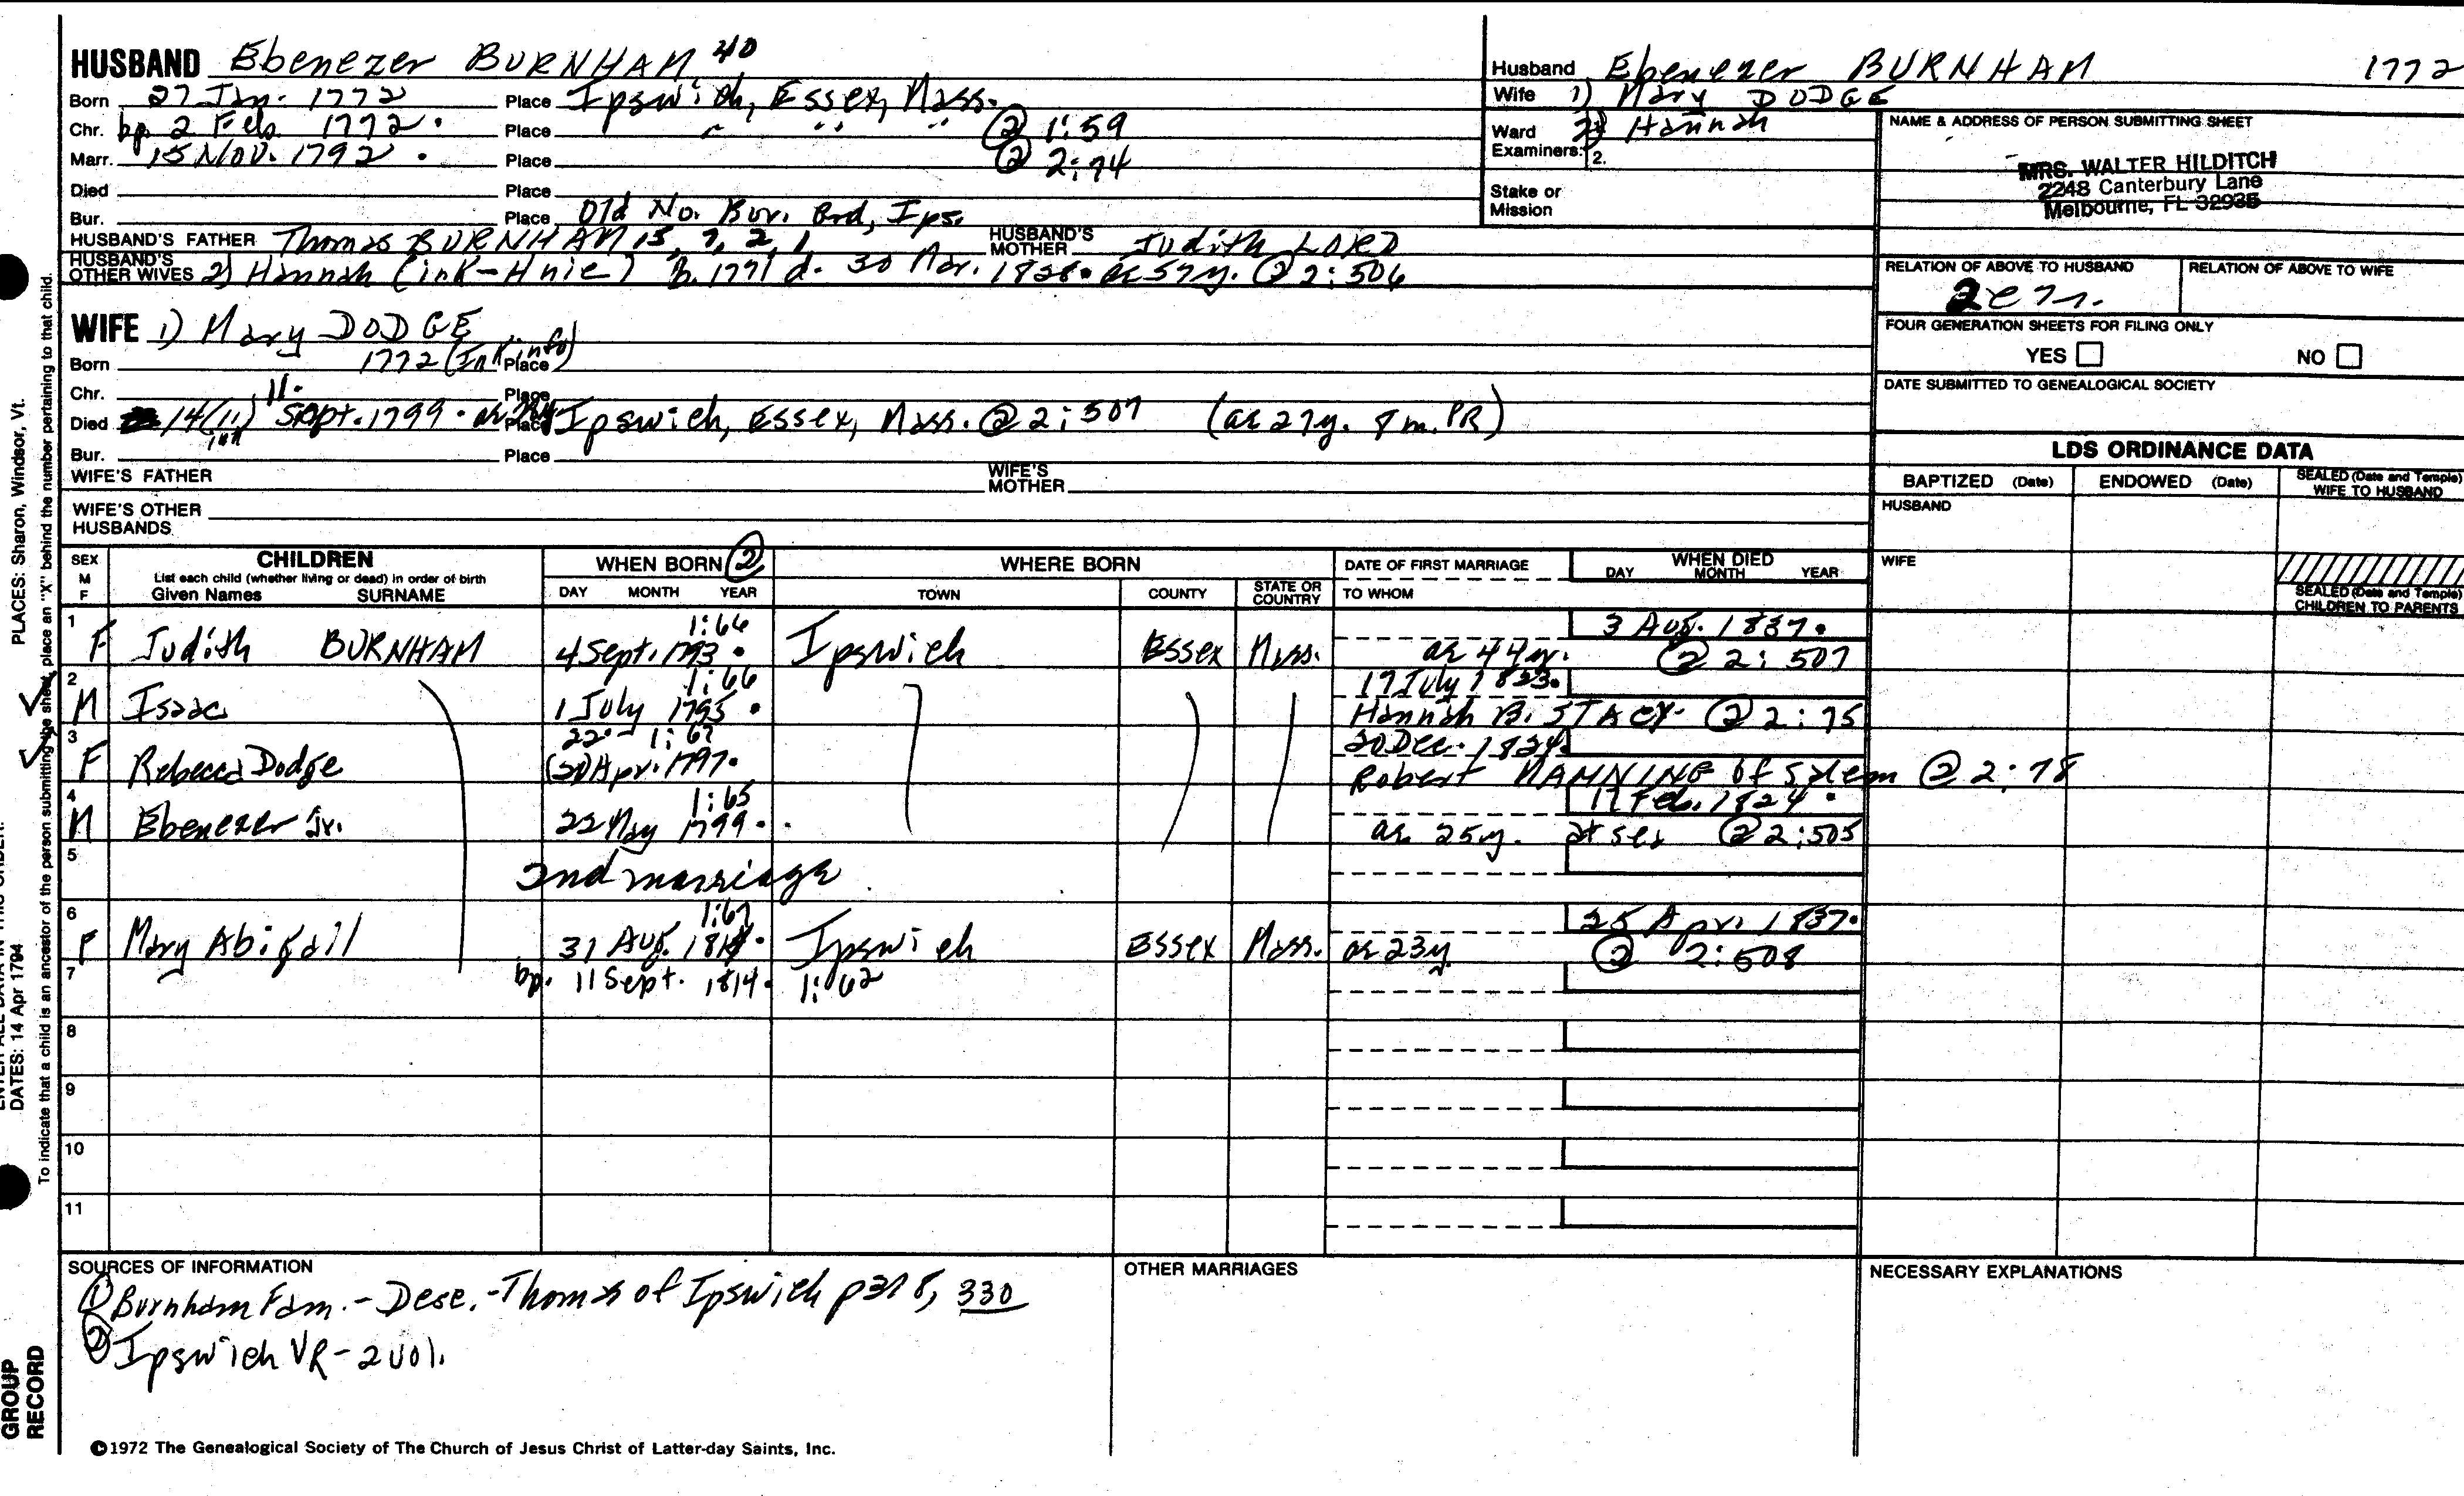 HUSBAND Ebenezer BURNHAM 40
Born 27 Jan. 1772 Place Ipswich, Essex, Mass.
Chr. bp. 2 Feb. 1772. Place " " " ② 1:59
Marr. 15 Nov. 1792. Place ② 2:74
Died Place
Bur. Place Old No. Bur. Grd, Ips.
HUSBAND'S FATHER Thomas BURNHAM 15, 7, 2, 1 HUSBAND'S MOTHER Judith LORD
HUSBAND'S OTHER WIVES 2) Hannah B. 1771 d. 30 Mar. 1828. ae 57y. ② 2:506
Husband Ebenezer BURNHAM 1772
Wife 1) Mary DODGE
Ward 2) Hannah
Examiners: 2.
Stake or Mission
NAME & ADDRESS OF PERSON SUBMITTING SHEET
MRS. WALTER HILDITCH
2248 Canterbury Lane
Melbourne, FL 32935
RELATION OF ABOVE TO HUSBAND RELATION OF ABOVE TO WIFE
FOUR GENERATION SHEETS FOR FILING ONLY
YES NO
DATE SUBMITTED TO GENEALOGICAL SOCIETY
WIFE 1) Mary DODGE
Born 1772 (Ink info) Place
Chr. 11. Place
Died 14 (11) Sept. 1799. Place Ipswich, Essex, Mass. ② 2:507 (ae 27y. 8m. PR)
Bur. Place
WIFE'S FATHER WIFE'S MOTHER
WIFE'S OTHER HUSBANDS
LDS ORDINANCE DATA
BAPTIZED (Date) ENDOWED (Date) SEALED (Date and Temple) WIFE TO HUSBAND
HUSBAND
WIFE
SEALED (Date and Temple) CHILDREN TO PARENTS
SEX M F CHILDREN WHEN BORN ② WHERE BORN DATE OF FIRST MARRIAGE WHEN DIED
List each child (whether living or dead) in order of birth
Given Names SURNAME DAY MONTH YEAR TOWN COUNTY STATE OR COUNTRY TO WHOM DAY MONTH YEAR
1 1:66 3 Aug. 1837.
F Judith BURNHAM 4 Sept. 1793. Ipswich Essex Mass. ae 44y. ② 2:507
2 1:66 17 July 1823.
M Isaac 1 July 1795. Hannah B. STACEY ② 2:75
3 22. 1:67 20 Dec. 1824.
F Rebecca Dodge (20) Apr. 1797. Robert MANNING of Salem ② 2:78
4 1:65 17 Feb. 1824.
M Ebenezer Jr. 22 May 1799. ae 25y. at sea ② 2:505
5 2nd marriage
6 1:67 25 Apr. 1837.
F Mary Abigail 31 Aug. 1814. Ipswich Essex Mass. ae 23y. ② 2:508
7 bp. 11 Sept. 1814. 1:62
8
9
10
11
SOURCES OF INFORMATION OTHER MARRIAGES NECESSARY EXPLANATIONS
① Burnham Fam. - Desc. - Thomas of Ipswich p 318, 330
② Ipswich VR - 2 vol.
©1972 The Genealogical Society of The Church of Jesus Christ of Latter-day Saints, Inc.
PLACES: Sharon, Windsor, Vt.
DATES: 14 Apr 1794
To indicate that a child is an ancestor of the person submitting the sheet, place an "X" behind the number pertaining to that child.
GROUP RECORD